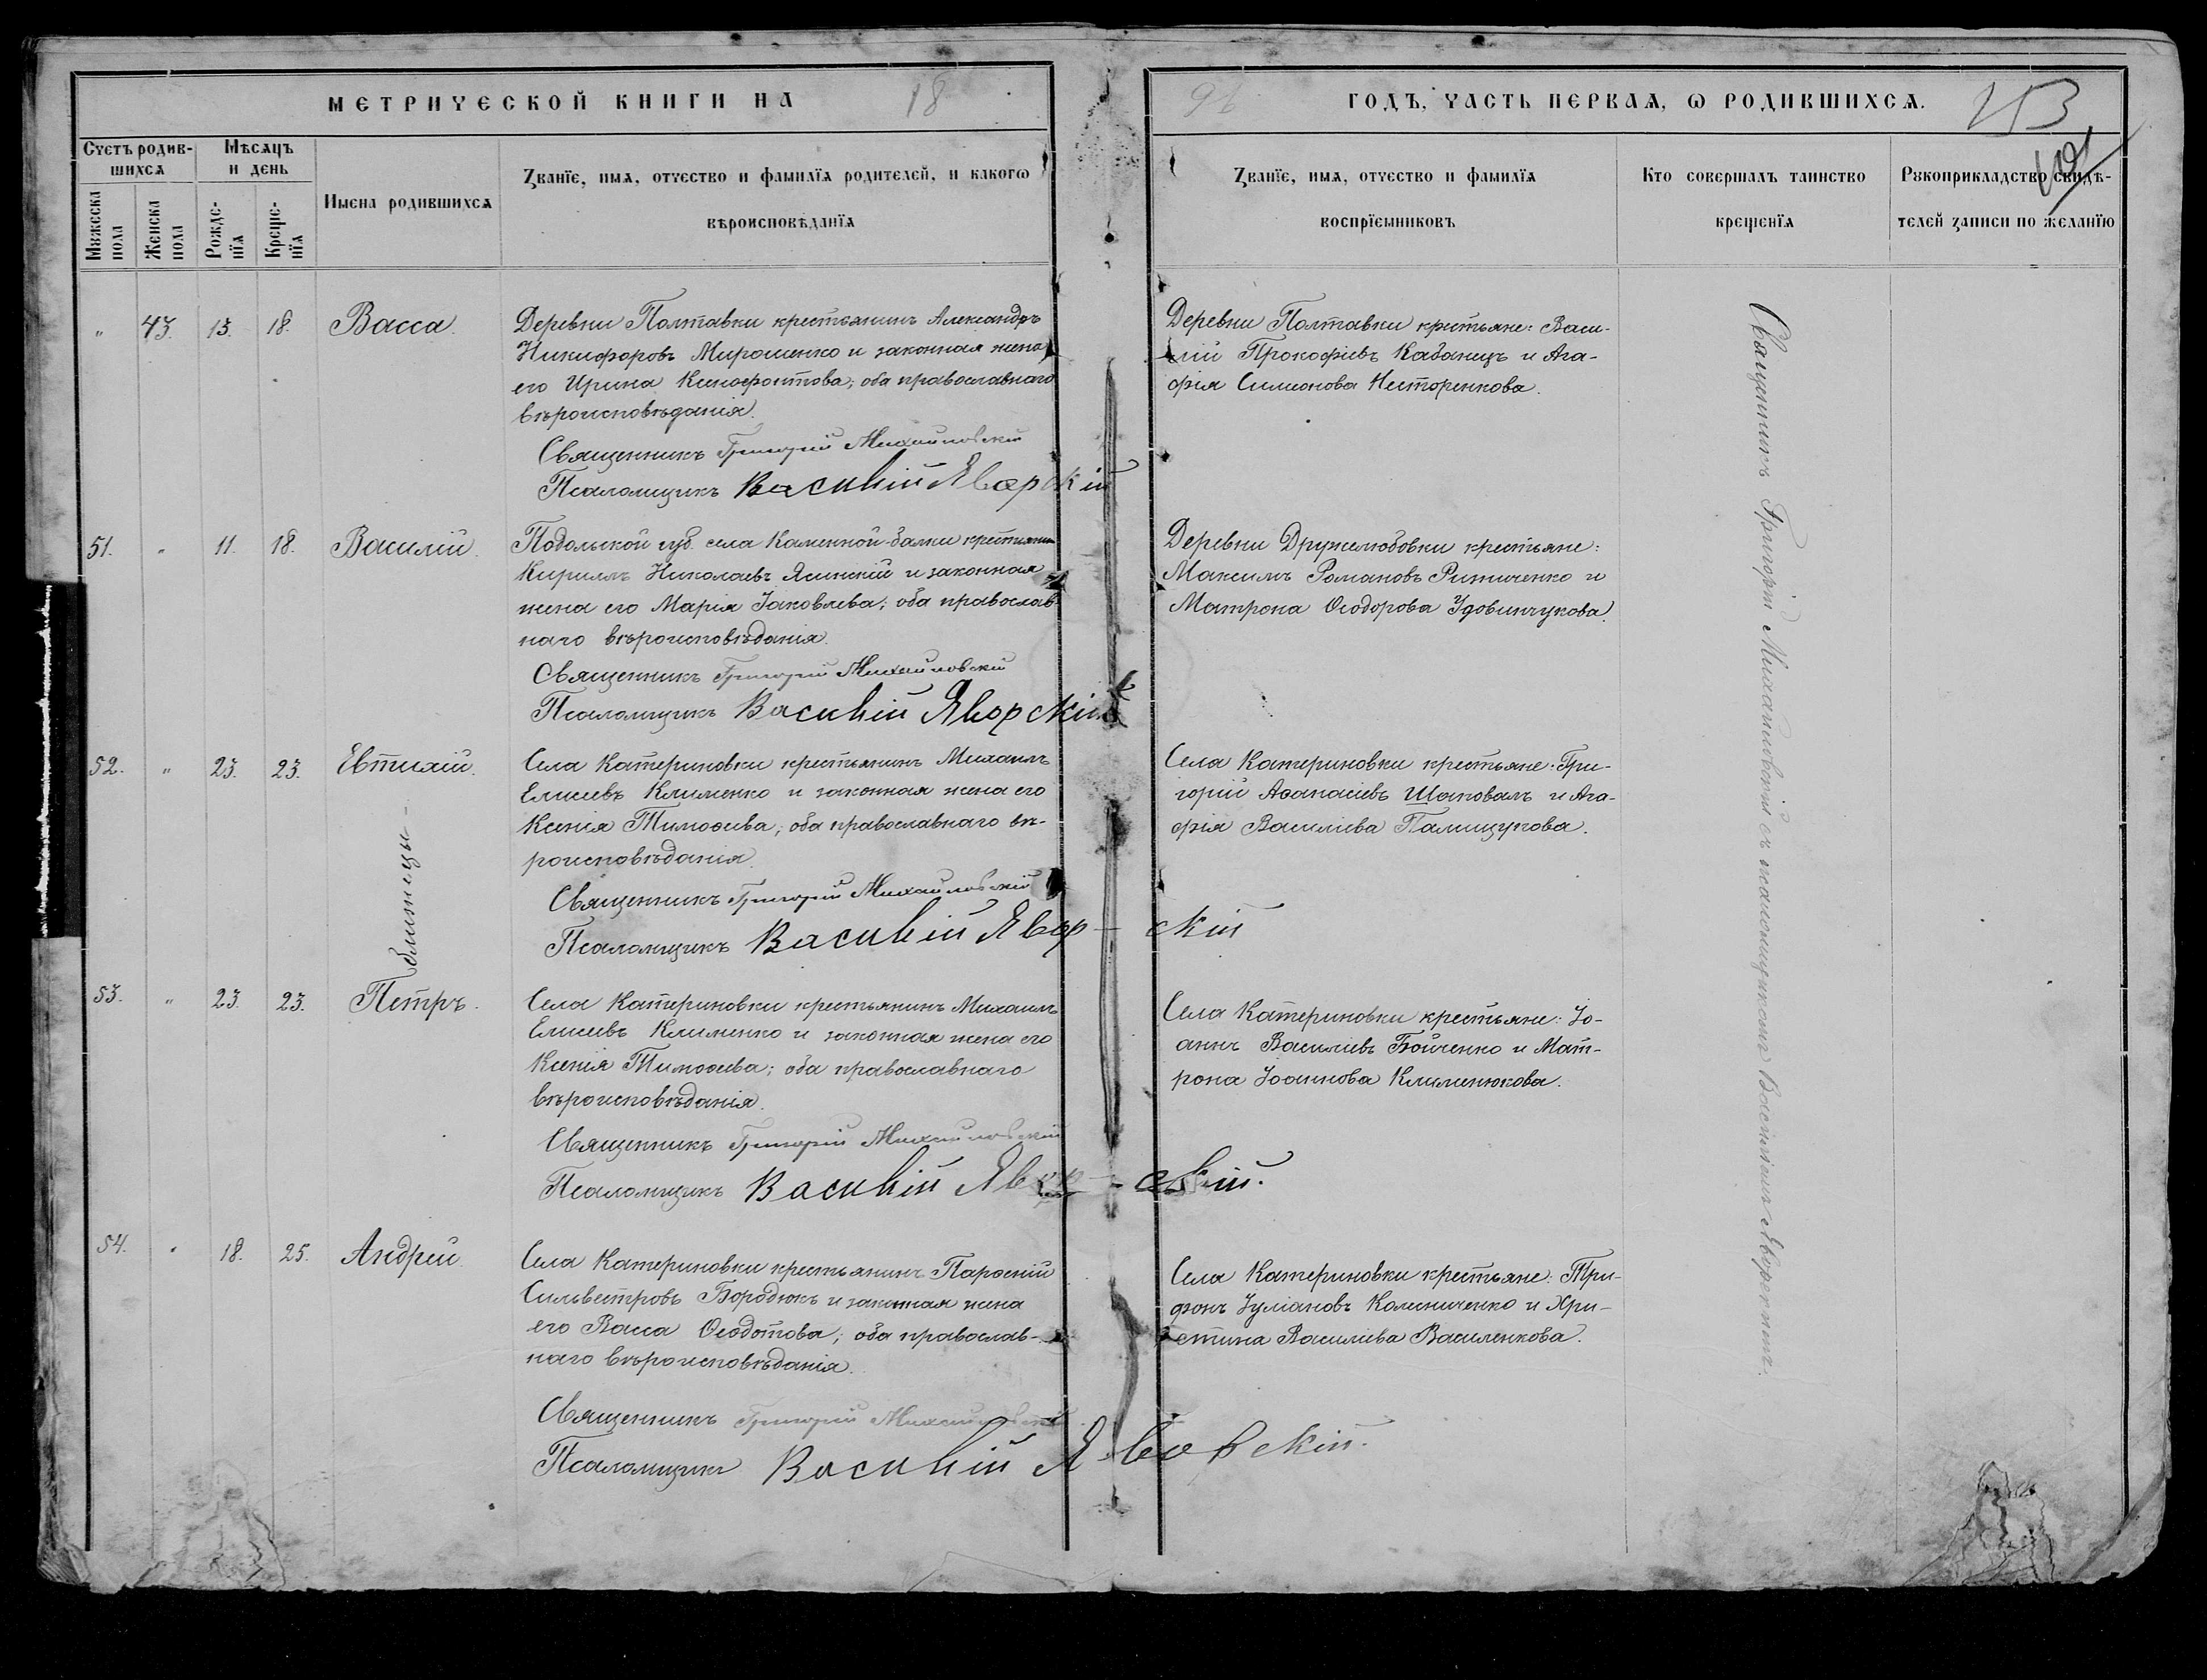 МЕТРИЧЕСКОЙ КНИГИ НА 18
96 ГОДЪ, ЧАСТЬ ПЕРВАЯ, Ѡ РОДИВШИХСѦ.
Счетъ родив-
шихсѧ
Мѣсѧцъ
и день
Мꙋжеска
пола
Женска
пола
Рожде-
нїѧ
Креще-
нїѧ
Имена родившихсѧ
Званїе, имѧ, отчество и фамилїѧ родителей, и какогѡ
вѣроисповѣданїѧ
Званїе, имѧ, отчество и фамилїѧ
воспрїемниковъ
Кто совершалъ таинство
крещенїѧ
Рꙋкоприкладство свидѣ-
телей записи по желанїю
" 43. 13. 18. Васса.
Деревни Полтавки крестьянинъ Александръ
Никифоровъ Мирошенко и законная жена
его Ирина Ксенофонтова; оба православнаго
вѣроисповѣданія.
Священникъ Григорій Михайловскій
Псаломщикъ Василій Яворскій
Деревни Полтавки крестьяне: Васи-
лій Прокофіевъ Кабанецъ и Ага-
фія Симеонова Несторенкова.
51. " 11. 18. Василій.
Подольской губ. села Каменной-балки крестьянинъ
Кириллъ Николаевъ Ясинскій и законная
жена его Марія Іаковлева; оба православ-
наго вѣроисповѣданія.
Священникъ Григорій Михайловскій
Псаломщикъ Василій Яворскій
Деревни Дружелюбовки крестьяне:
Максимъ Романовъ и
Матрона Ѳеодорова Удовинчукова.
52. " 23. 23. Евтихій.
Села Катериновки крестьянинъ Михаилъ
Елисеевъ Клименко и законная жена его
Ксенія Тимоѳеева; оба православнаго вѣ-
роисповѣданія.
Священникъ Григорій Михайловскій
Псаломщикъ Василій Яворскій
близнецы -
Села Катериновки крестьяне: Гри-
горій Аѳанасіевъ Шаповалъ и Ага-
фія Василіева Палищукова.
53. " 23. 23. Петръ.
Села Катериновки крестьянинъ Михаилъ
Елисеевъ Клименко и законная жена его
Ксенія Тимоѳеева; оба православнаго
вѣроисповѣданія.
Священникъ Григорій Михайловскій
Псаломщикъ Василій Яворскій.
Села Катериновки крестьяне: Іо-
аннъ Василіевъ Бойченко и Мат-
рона Іоаннова Клименюкова.
54. " 18. 25. Андрей.
Села Катериновки крестьянинъ Парѳеній
Сильвестровъ Бородюкъ и законная жена
его Васса Ѳеодотова; оба православ-
наго вѣроисповѣданія.
Священникъ Григорій Михайловскій
Псаломщикъ Василій Яворскій.
Села Катериновки крестьяне: Три-
фонъ Іуліановъ Калиниченко и Хри-
стина Василіева Василенкова.
Священникъ Григорій Михайловскій съ псаломщикомъ Василіемъ Яворскимъ.